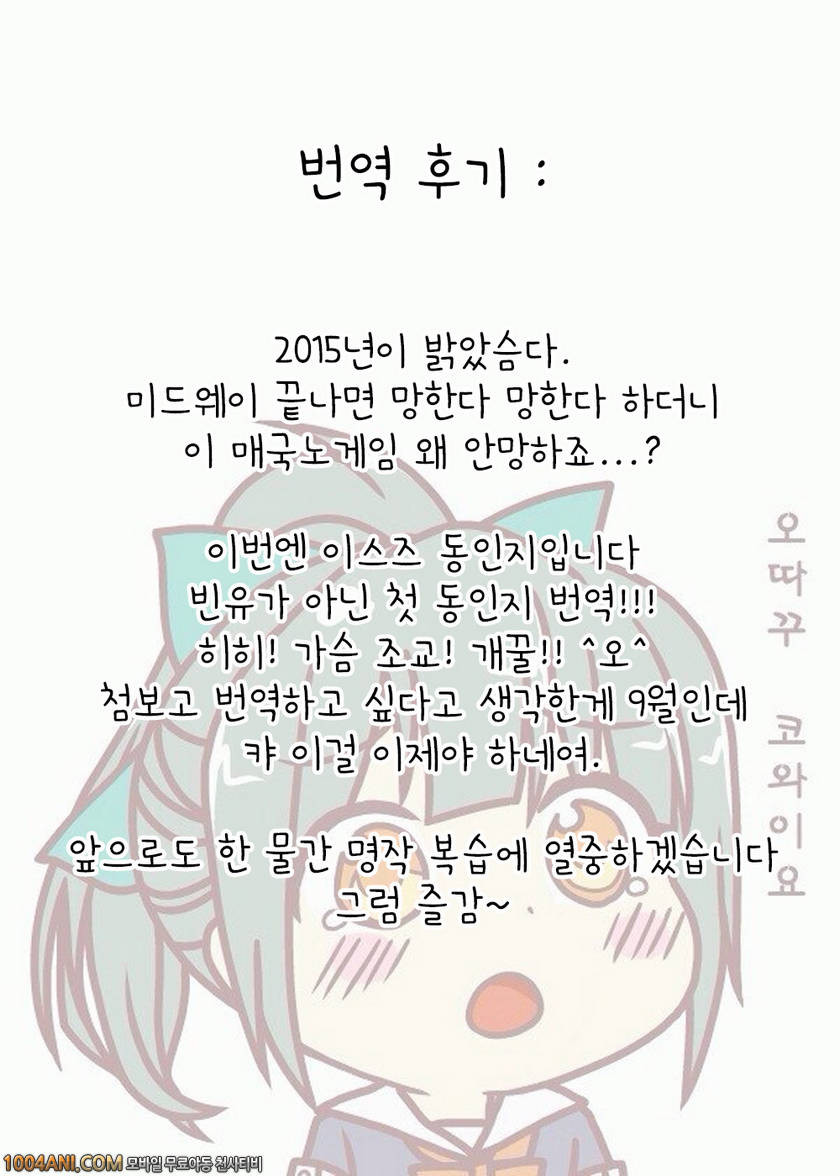 번역 후기 :
2015년이 밝았슴다.
미드웨이 끝나면 망한다 망한다 하더니
이 매국노게임 왜 안망하죠...?
이번엔 이스즈 동인지입니다
빈유가 아닌 첫 동인지 번역!!!
히히! 가슴 조교! 개꿀!! ^오^
첨보고 번역하고 싶다고 생각한게 9월인데
캬 이걸 이제야 하네여.
앞으로도 한 물간 명작 복습에 열중하겠습니다
그럼 즐감~
오따꾸 코와이요
1004ANI.COM 모바일 무료야동 천사티비